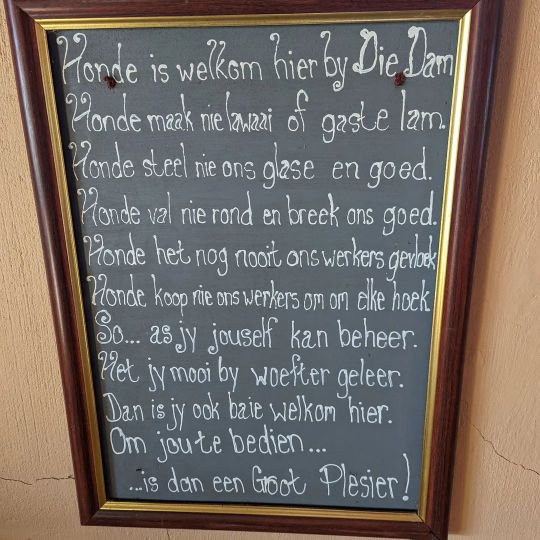 Honde is welkom hier by Die Dam
Honde maak nie lawaai of gaste lam.
Honde steel nie ons glase en goed.
Honde val nie rond en breek ons goed.
Honde het nog nooit ons werkers gevloek
Honde koop nie ons werkers om om elke hoek
So... as jy jouself kan beheer.
Het jy mooi by woefter geleer.
Dan is jy ook baie welkom hier.
Om jou te bedien...
...is dan een Groot Plesier!